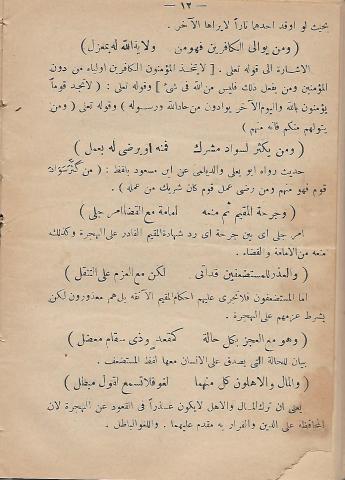 — ١٢ —
بحيث لو اوقد احدهما ناراً لايراها الآخر .
( ومن يوالى الكافرين فهومن ولاية الله له بمعزل )
الاشارة الى قوله تعالى . [ لايتخذ المؤمنون الكافرين اولياء من دون
المؤمنين ومن يفعل ذلك فليس من الله فى شئ ] وقوله تعالى : ( لاتجد قوماً
يؤمنون بالله واليوم الآخر يوادون من حادالله ورسوله ) وقوله تعالى ( ومن
يتولهم منكم فانه منهم )
( ومن يكثر لسواد مشرك فمنه او يرضى له بعمل )
حديث رواه ابو يعلى والديلمى عن ابن مسعود بلفظ : ( من كَثَّرَ سَوَادَ
قوم فهو منهم ومن رضى عمل قوم كان شريك من عمله ) .
( وجرحة المقيم ثم منعه امامة مع القضا امر جلى )
امر جلى اى بين جرحة اى رد شهادة المقيم القادر على الهجرة وكذلك
منعه من الامامة والقضاء .
( والعذر للمستضعفين قد اتى لكن مع العزم على التنقل )
اما المستضعفون فلا تجرى عليهم احكام المقيم الآنفه بل هم معذورون لكن
بشرط عزمهم على الهجرة .
( وهو مع العجز بكل حالة كمقعد وذى سقام معضل )
بيان للحالة التى يصدق على الانسان معها لفظ المستضعف .
( والمال والاهلون كل منهما لغو فلا تسمع اقول مبطل )
يعنى ان ترك المال والاهل لايكون عذراً فى القعود عن الهجرة لان
المحافظة على الدين والفرار به مقدم عليهما . واللغو الباطل .